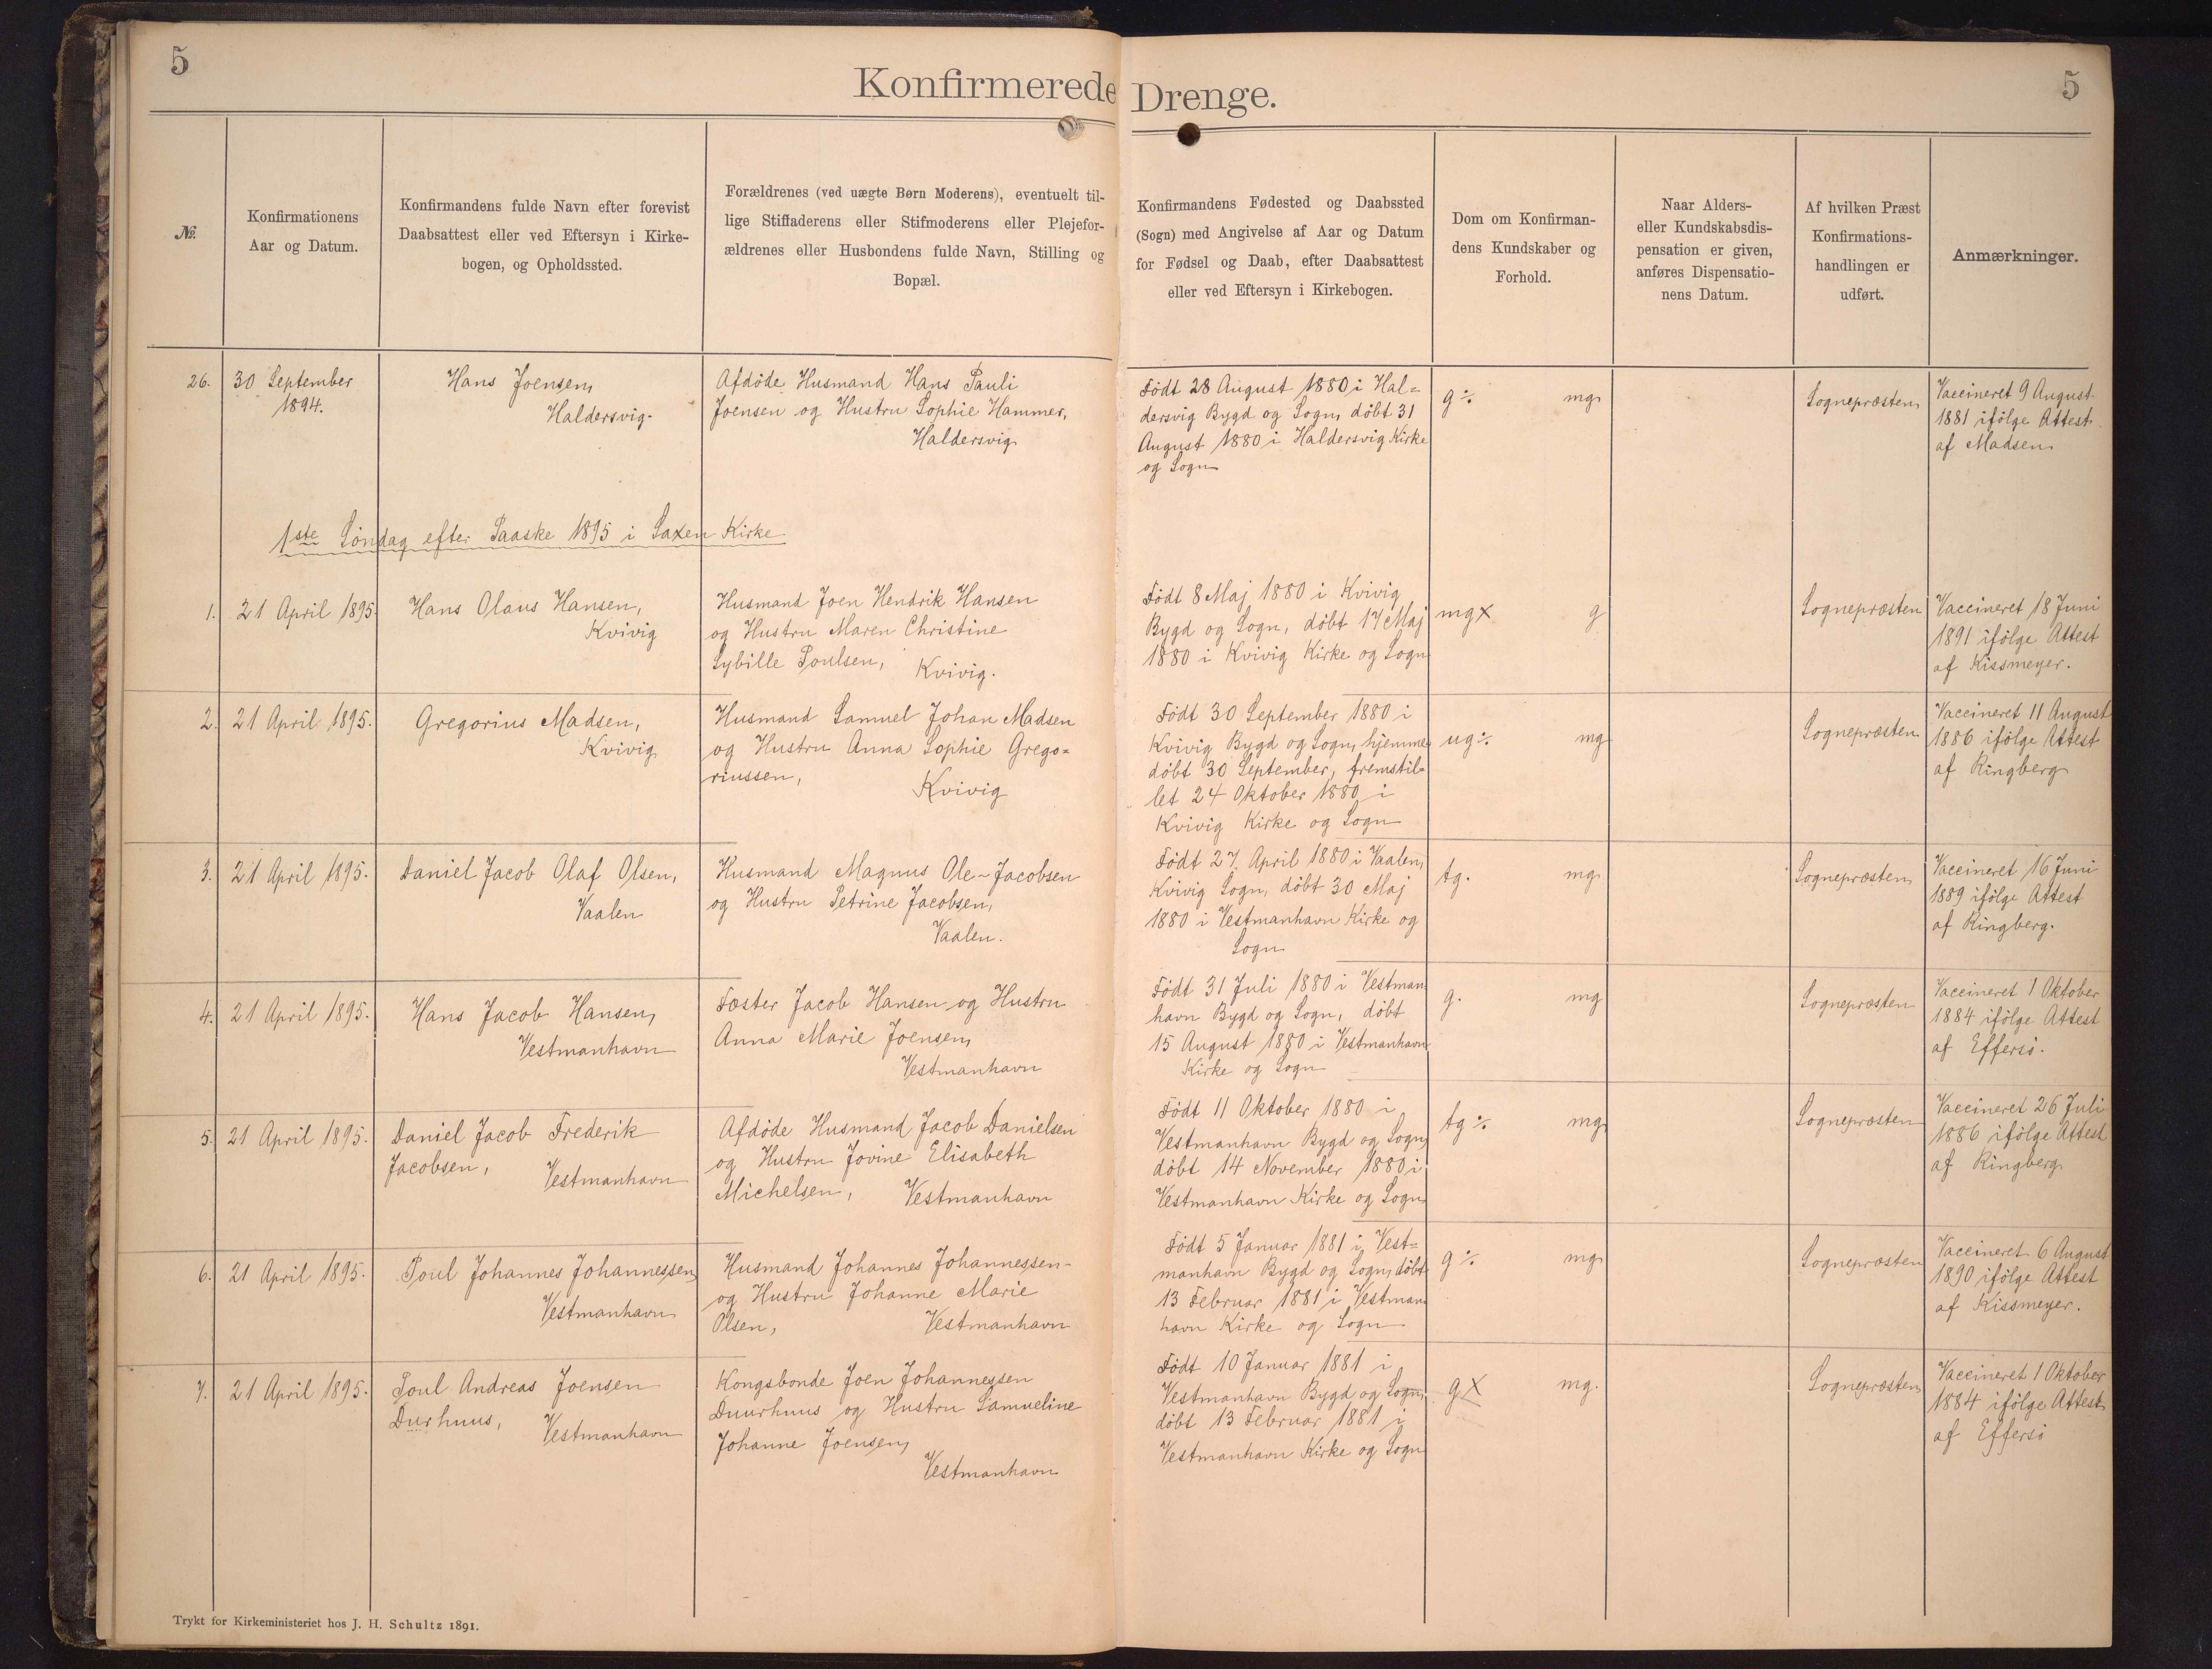 5
Konfirmerede Drenge.
5
№.
Konfirmationens
Aar og Datum.
Konfirmandens fulde Navn efter forevist
Daabsattest eller ved Eftersyn i Kirke-
bogen, og Opholdssted.
Forældrenes (ved uægte Børn Moderens), eventuelt til-
lige Stiffaderens eller Stifmoderens eller Plejefor-
ældrenes eller Husbondens fulde Navn, Stilling og
Bopæl.
Konfirmandens Fødested og Daabssted
(Sogn) med Angivelse af Aar og Datum
for Fødsel og Daab, efter Daabsattest
eller ved Eftersyn i Kirkebogen.
Dom om Konfirman-
dens Kundskaber og
Forhold.
Naar Alders-
eller Kundskabsdis-
pensation er given,
anføres Dispensatio-
nens Datum.
Af hvilken Præst
Konfirmations-
handlingen er
udført.
Anmærkninger.
26.
30 September
1894.
Hans Joensen,
Haldersvig.
Afdøde Husmand Hans Pauli
Joensen og Hustru Sophie Hammer,
Haldersvig
Født 28 August 1880 i Hal=
dersvig Bygd og Sogn, døbt 31
August 1880 i Haldersvig Kirke
og Sogn
g÷ mg
Sognepræsten
Vaccineret 9 August
1881 ifølge Attest
af Madsen
1ste Søndag efter Paaske 1895 i Saxen Kirke
1.
21 April 1895
Hans Olaus Hansen,
Kvivig
Husmand Joen Hendrik Hansen
og Hustru Maren Christine
Sybille Poulsen,
Kvivig.
Født 8 Maj 1880 i Kvivig
Bygd og Sogn, døbt 17 Maj
1880 i Kvivig Kirke og Sogn
mg× g
Sognepræsten
Vaccineret 18 Juni
1891 ifølge Attest
af Kissmeyer.
2.
21 April 1895.
Gregorius Madsen,
Kvivig
Husmand Samuel Johan Madsen
og Hustru Anna Sophie Grego=
riussen,
Kvivig
Født 30 September 1880 i
Kvivig Bygd og Sogn, hjemme
døbt 30 September, fremstil=
let 24 Oktober 1880 i
Kvivig Kirke og Sogn
ug÷ mg
Sognepræsten
Vaccineret 11 August
1886 ifølge Attest
af Ringberg
3.
21 April 1895.
Daniel Jacob Olaf Olsen,
Vaalen
Husmand Magnus Ole-Jacobsen
og Hustru Petrine Jacobsen,
Vaalen.
Født 27. April 1880 i Vaalen,
Kvivig Sogn, døbt 30 Maj
1880 i Vestmanhavn Kirke og
Sogn
tg. mg
Sognepræsten
Vaccineret 16 Juni
1889 ifølge Attest
af Ringberg.
4.
21 April 1895.
Hans Jacob Hansen,
Vestmanhavn
Fæster Jacob Hansen og Hustru
Anna Marie Joensen,
Vestmanhavn
Født 31 Juli 1880 i Vestman
havn Bygd og Sogn, døbt
15 August 1880 i Vestmanhavn
Kirke og Sogn
g. mg
Sognepræsten
Vaccineret 1 Oktober
1884 ifølge Attest
af Effersö.
5.
21 April 1895.
Daniel Jacob Frederik
Jacobsen,
Vestmanhavn
Afdøde Husmand Jacob Danielsen
og Hustru Jovine Elisabeth
Michelsen,
Vestmanhavn
Født 11 Oktober 1880 i
Vestmanhavn Bygd og Sogn,
døbt 14 November 1880 i
Vestmanhavn Kirke og Sogn
tg÷ mg
Sognepræsten
Vaccineret 26 Juli
1886 ifølge Attest
af Ringberg
6.
21 April 1895.
Poul Johannes Johannessen
Vestmanhavn
Husmand Johannes Johannessen
og Hustru Johanne Marie
Olsen,
Vestmanhavn
Født 5 Januar 1881 i Vest=
manhavn Bygd og Sogn, døbt
13 Februar 1881 i Vestman
havn Kirke og Sogn
g÷ mg
Sognepræsten
Vaccineret 6 August
1890 ifølge Attest
af Kissmeyer.
7.
21 April 1895.
Poul Andreas Joensen
Durhuus,
Vestmanhavn
Kongsbonde Joen Johannessen
Duurhuus og Hustru Samueline
Johanne Joensen,
Vestmanhavn
Født 10 Januar 1881 i
Vestmanhavn Bygd og Sogn,
døbt 13 Februar 1881 i
Vestmanhavn Kirke og Sogn
g× mg.
Sognepræsten
Vaccineret 1 Oktober
1884 ifølge Attest
af Effersö
Trykt for Kirkeministeriet hos J. H. Schultz 1891.